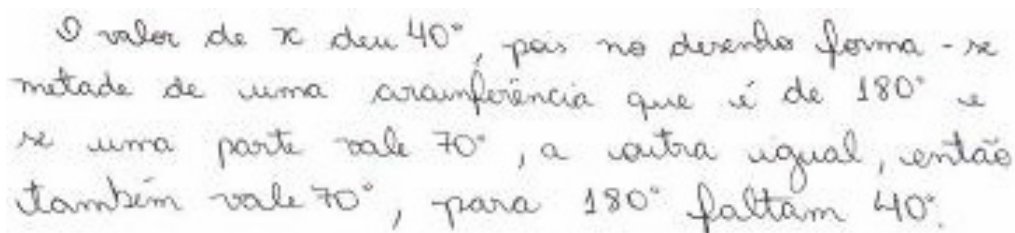 O valor de x deu 40°, pois no desenho forma-se
metade de uma circunferência que é de 180° e
se uma parte vale 70°, a outra igual, então
também vale 70°, para 180° faltam 40°.